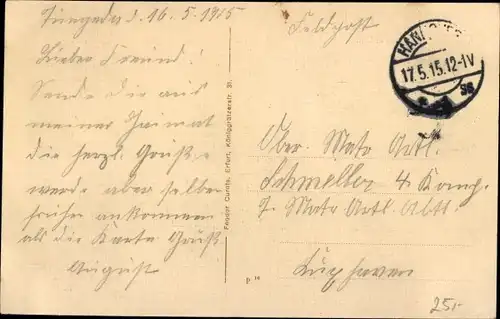 Tüngeda d. 16.5.1915
Lieber Freund!
Sende dir aus
meiner Heimat
die herzl. Grüße
werde aber selber
früher ankommen
als die Karte Gruß
August
Feodor Quntte, Erfurt, Königgrätzerstr. 31.
Feldpost
HAN
17.5.15.12-1V
Ober. Matr Artl.
Schmeller 4 Komp.
Matr Artl. Abtl.
Kuxhaven
25,-